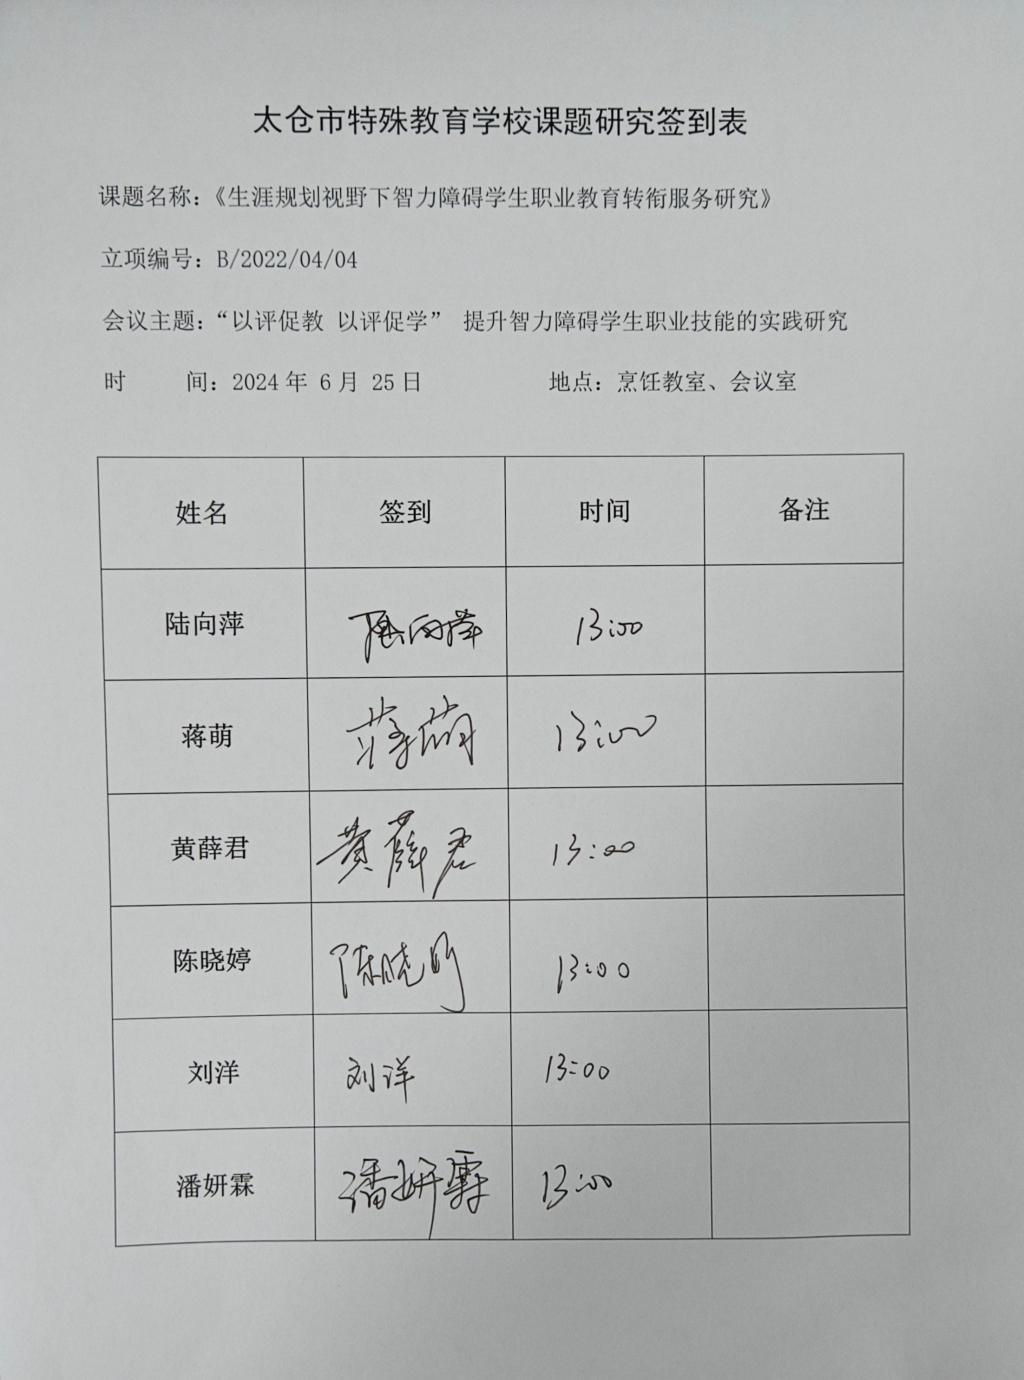 太仓市特殊教育学校课题研究签到表
课题名称：《生涯规划视野下智力障碍学生职业教育转衔服务研究》
立项编号：B/2022/04/04
会议主题：“以评促教 以评促学” 提升智力障碍学生职业技能的实践研究
时 间：2024 年 6 月 25 日 地点：烹饪教室、会议室
姓名 签到 时间 备注
陆向萍 陆向萍 13:00
蒋萌 蒋萌 13:00
黄薛君 黄薛君 13:00
陈晓婷 陈晓 13:00
刘洋 刘洋 13:00
潘妍霖 潘妍霖 13:00